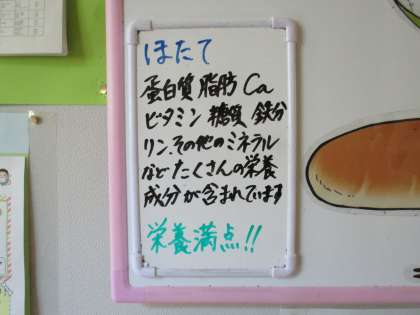 ほたて
蛋白質 脂肪 Ca
ビタミン 糖質 鉄分
リン、その他のミネラル
などたくさんの栄養
成分が含まれています
栄養満点!!